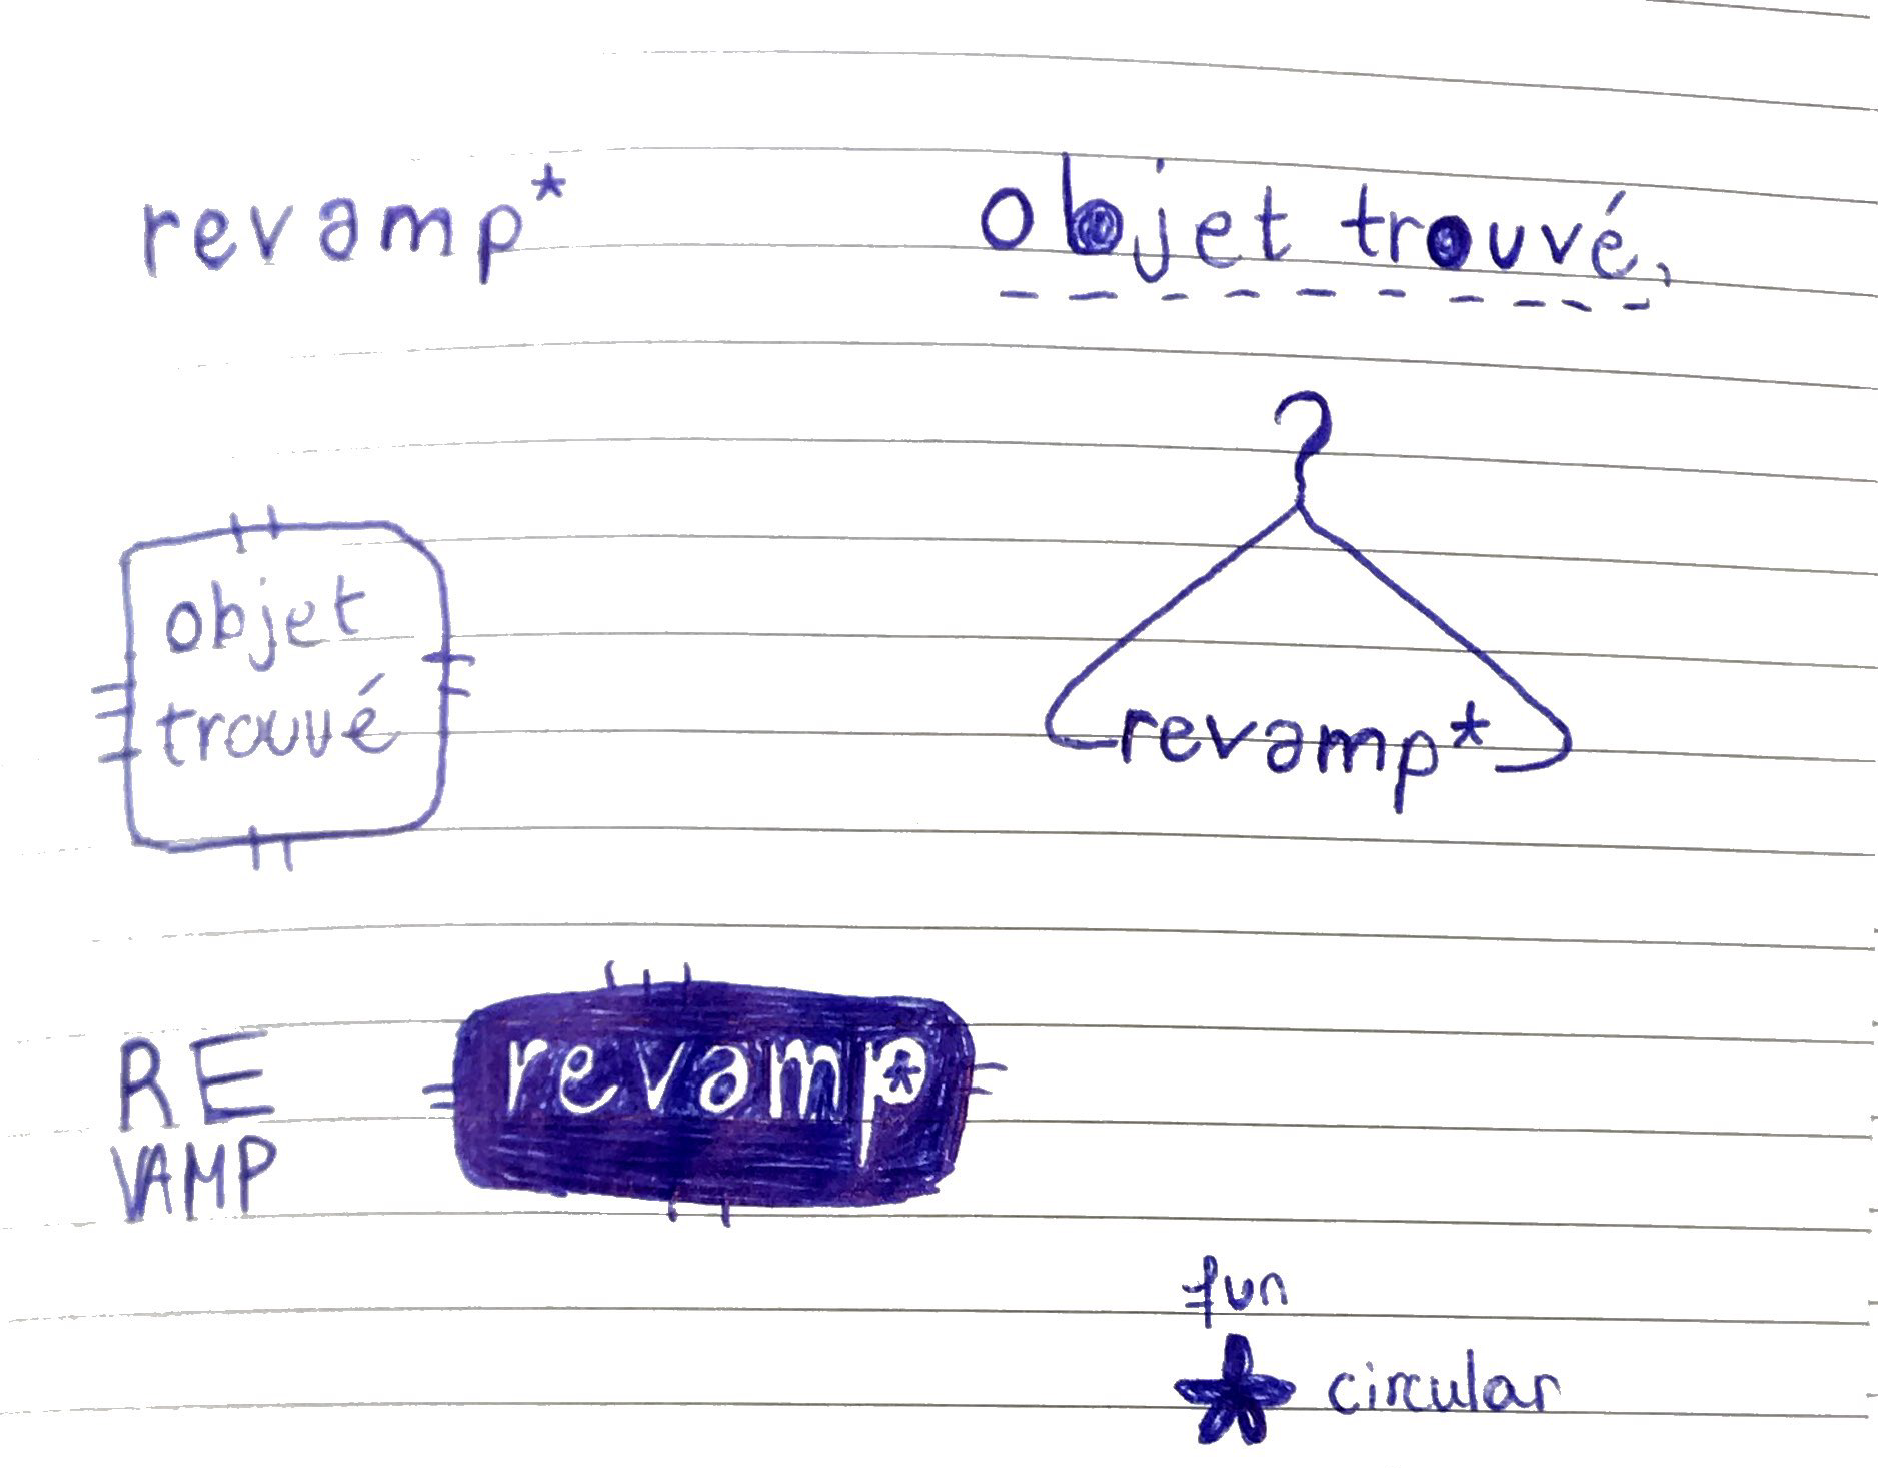 revamp*
objet trouvé,
objet
trouvé
revamp*
RE
VAMP
revamp*
fun
* circular